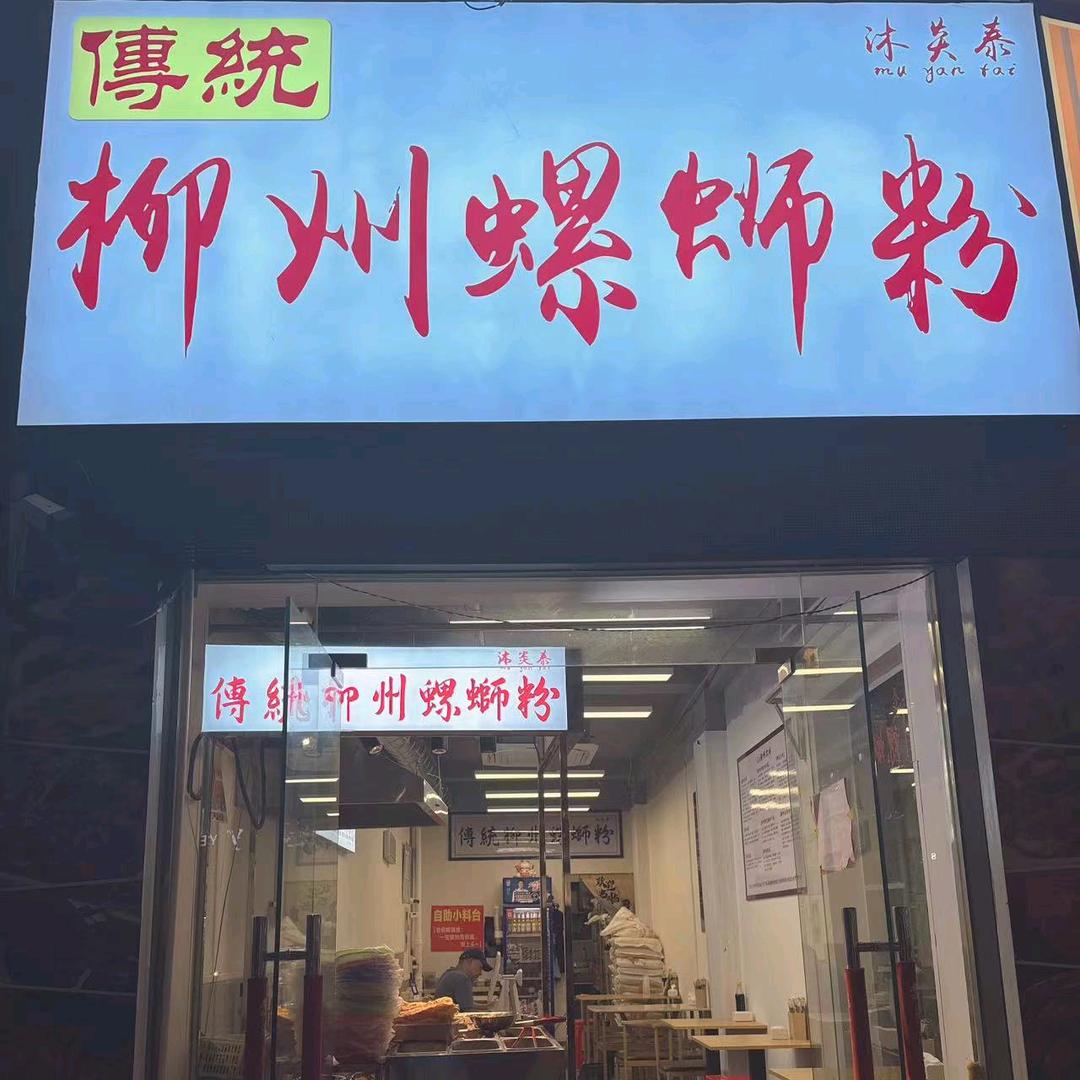 傳統
沐炎泰
mu yan tai
柳州螺螄粉
沐炎泰
傳統柳州螺螄粉
傳統柳州螺螄粉
自助小料台